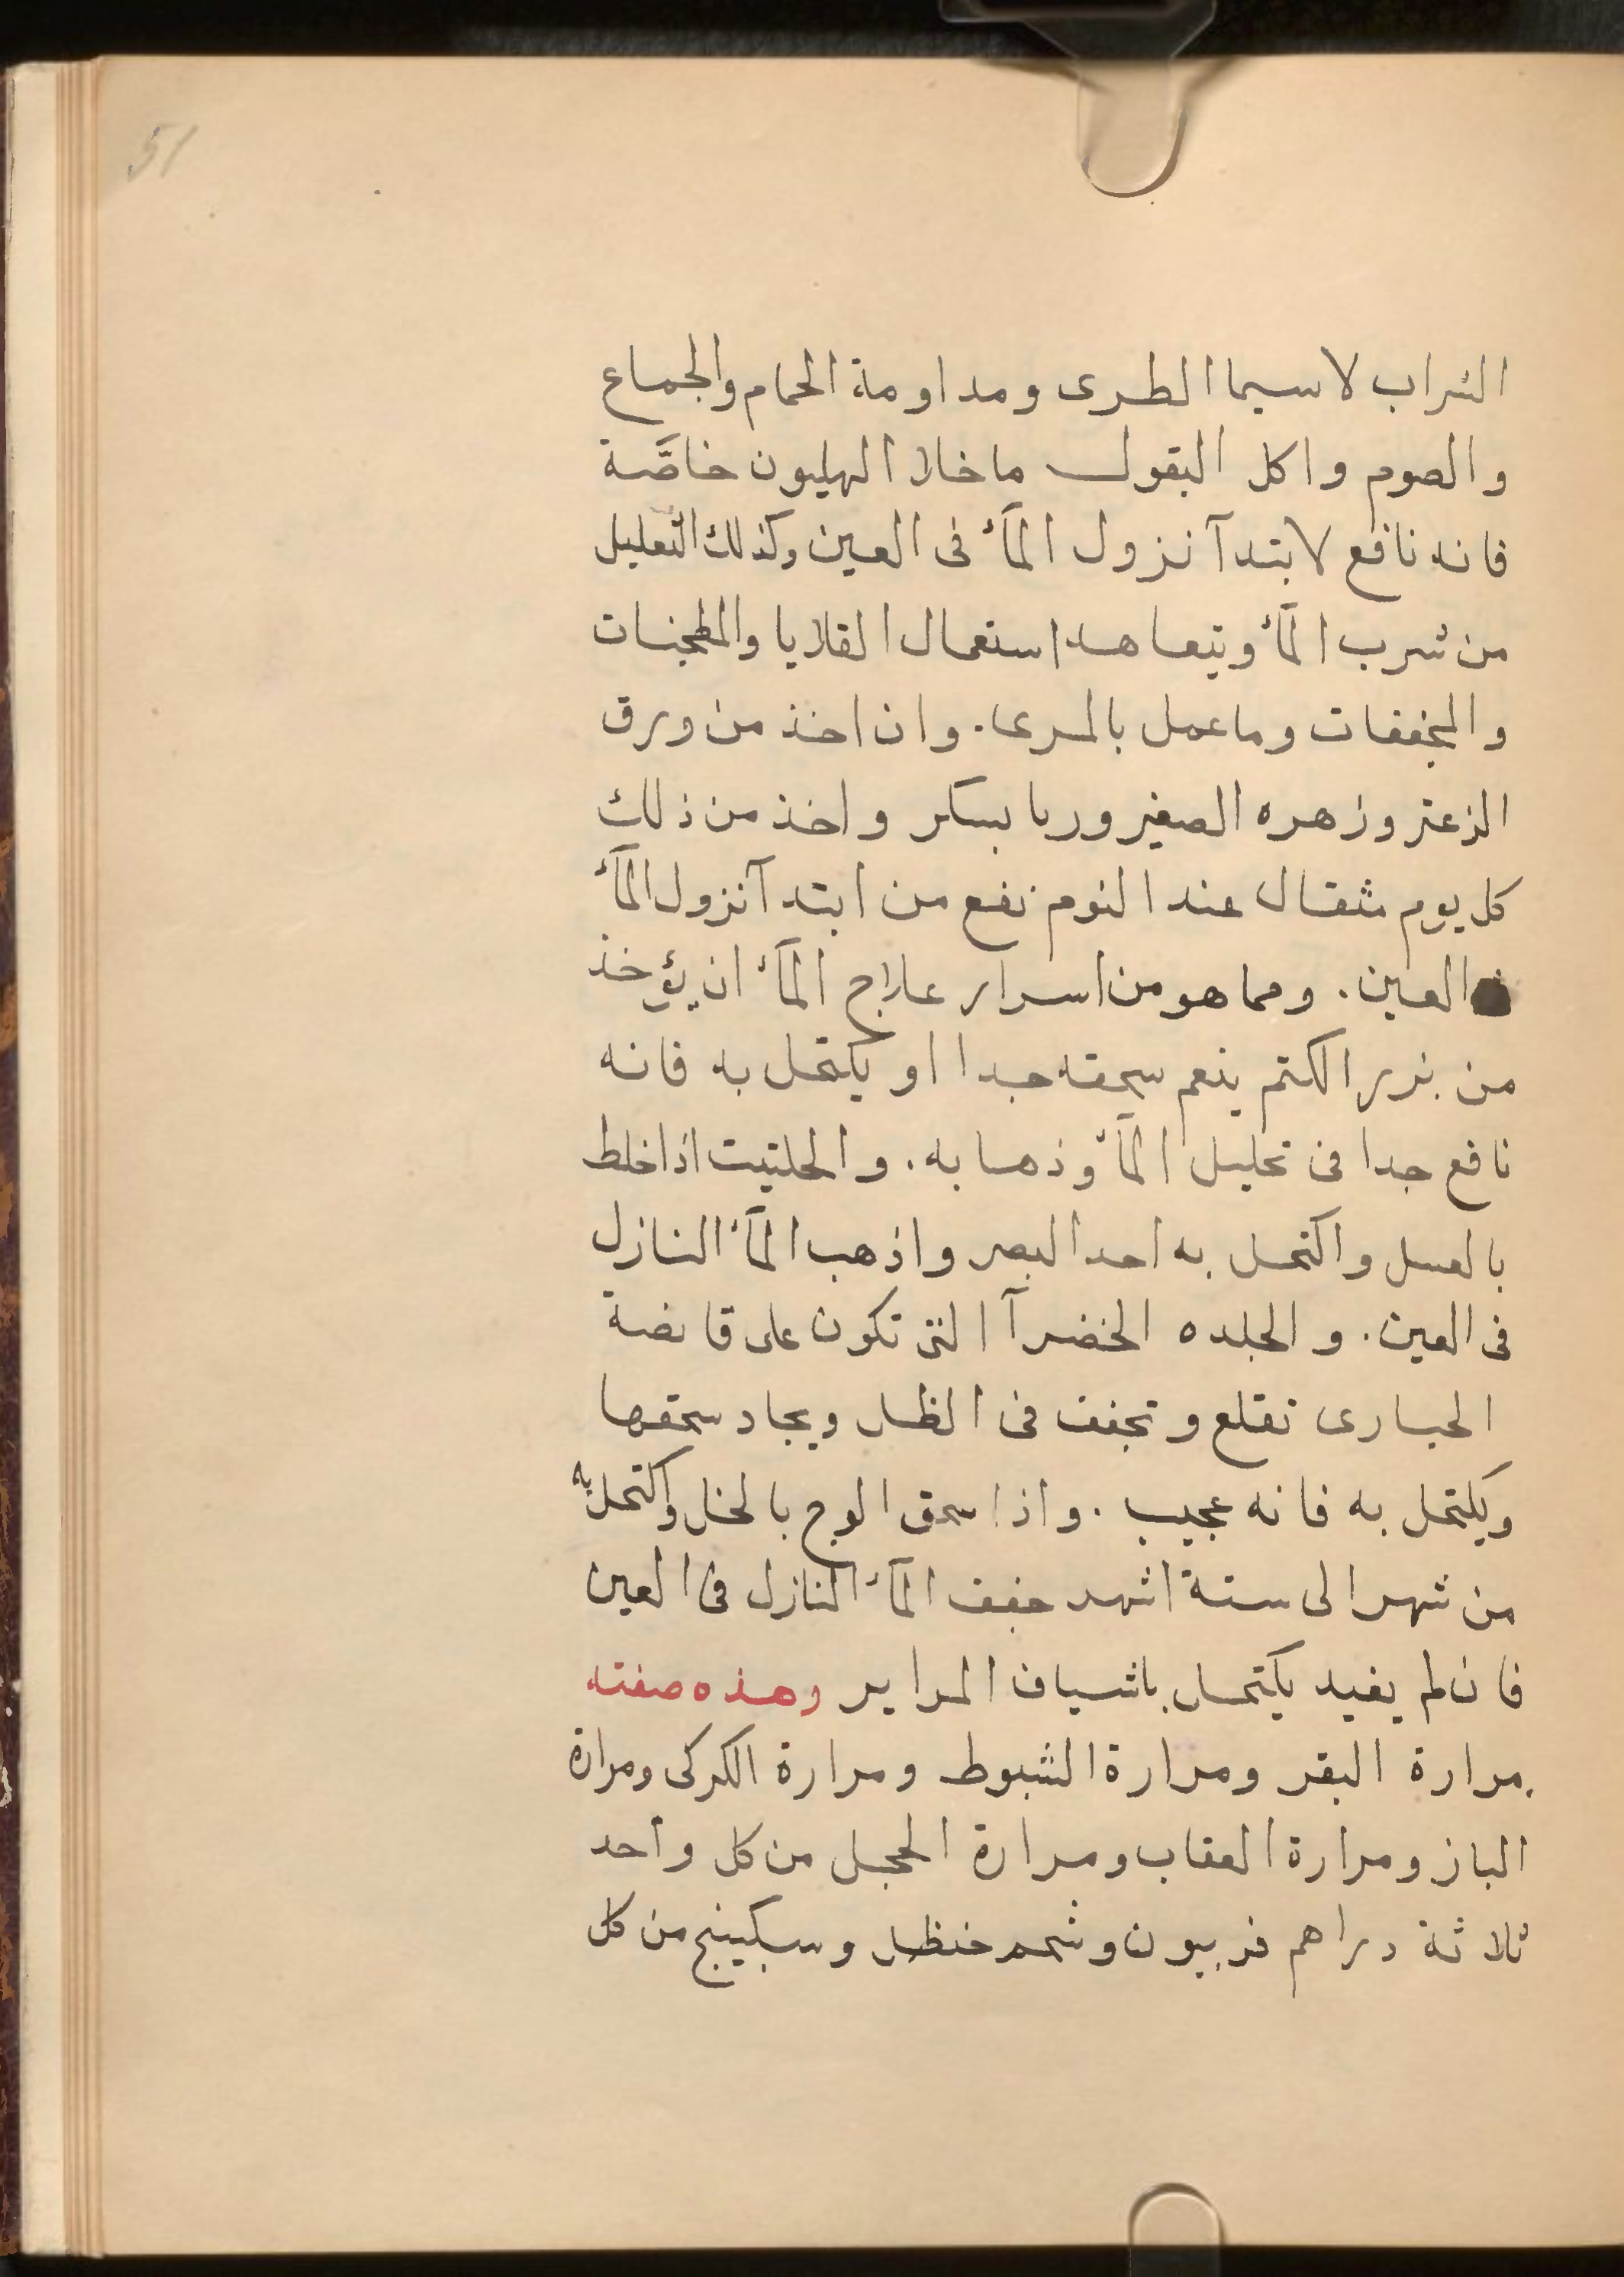 51
الشراب لاسيما الطرى ومداومة الحمام والجماع
والصوم واكل البقول ماخلا الهليون خاصَّة
فانه نافع لابتدآ نزول المآء فى العين وكذلك التقليل
من شرب المآء ويتعاهد استعمال القلايا والمطجنات
والمجففات وماعمل بالمرى. وان اخذ من ورق
الزعتر وزهره الصغير وربا بسكر واخذ من ذلك
كل يوم مثقال عند النوم نفع من ابتدآ نزول المآء
فى العين. ومما هو من اسرار علاج المآء ان يؤخذ
من بزر الكتم ينعم سحقه جدا او يكتحل به فانه
نافع جدا فى تحليل المآء وذهابه. والحلتيت اذا خلط
بالعسل واكتحل به احد البصر واذهب المآء النازل
فى العين. والجلده الخضرآ التى تكون على قانصة
الحبارى تقلع وتجفف فى الظل ويجاد سحقها
ويكتحل به فانه عجيب. واذا سحق الوج بالخل واكتحل به
من شهر الى ستة اشهر جفف المآء النازل فى العين
فان لم يفيد يكتحل باشياف المراير وهذه صفته
مرارة البقر ومرارة الشبوط ومرارة الكركى ومرارة
الباز ومرارة العقاب ومرارة الحجل من كل واحد
ثلاثة دراهم فربيون وشحم حنظل وسكبينج من كل